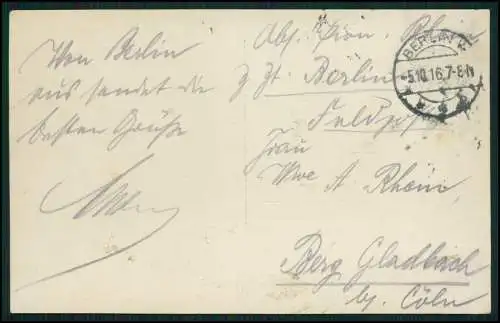 Von Berlin
aus sendet die
besten Grüße
Abs. Pion. Rhein
z Zt. Berlin
Feldpost
Frau
Wwe A. Rhein,
Berg Gladbach
bj. Cöln
BERLIN
-5.10.16.7-8N